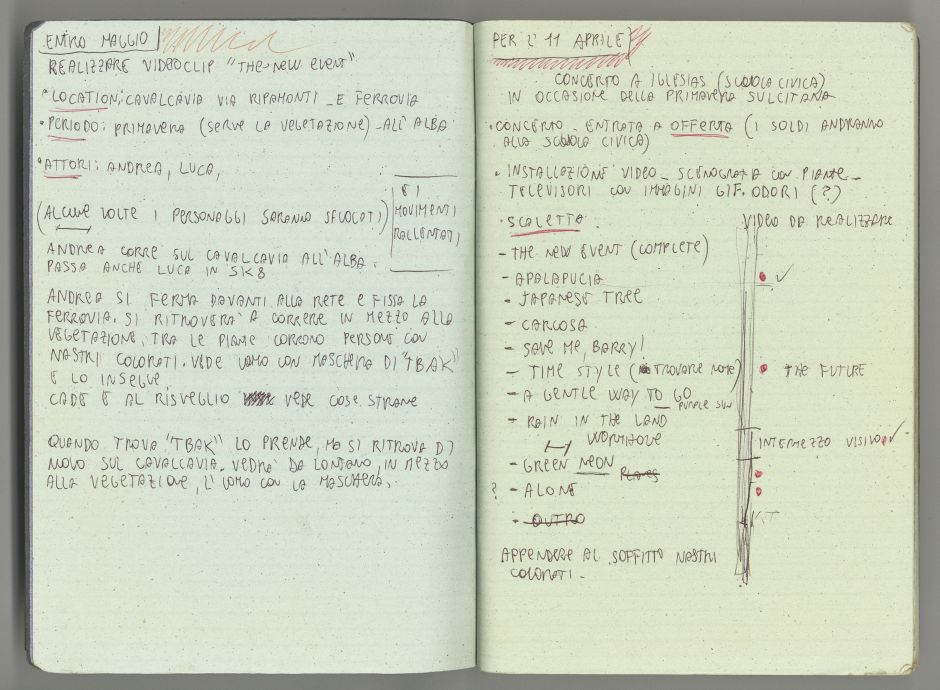 ENTRO MAGGIO
REALIZZARE VIDEOCLIP "THE NEW EVENT"
• LOCATION: CAVALCAVIA VIA RIPAMONTI - E FERROVIA
• PERIODO: PRIMAVERA (SERVE LA VEGETAZIONE) - ALL'ALBA
• ATTORI: ANDREA, LUCA,
(ALCUNE VOLTE I PERSONAGGI SARANNO SFUOCATI)
E I
MOVIMENTI
RALLENTATI
ANDREA CORRE SUL CAVALCAVIA ALL'ALBA.
PASSA ANCHE LUCA IN SK8
ANDREA SI FERMA DAVANTI ALLA RETE E FISSA LA
FERROVIA. SI RITROVERA' A CORRERE IN MEZZO ALLA
VEGETAZIONE, TRA LE PIANTE CORRONO PERSONE CON
NASTRI COLORATI. VEDE UOMO CON MASCHERA DI "TBAK"
E LO INSEGUE
CADE E AL RISVEGLIO VEDE COSE STRANE
QUANDO TROVA "TBAK" LO PRENDE, MA SI RITROVA DI
NUOVO SUL CAVALCAVIA. VEDRA' DA LONTANO, IN MEZZO
ALLA VEGETAZIONE, L'UOMO CON LA MASCHERA.
PER L'11 APRILE
CONCERTO A IGLESIAS (SCUOLA CIVICA)
IN OCCASIONE DELLA PRIMAVERA SULCITANA
• CONCERTO - ENTRATA A OFFERTA (I SOLDI ANDRANNO
ALLA SCUOLA CIVICA)
• INSTALLAZIONE VIDEO - SCENOGRAFIA CON PIANTE -
TELEVISORI CON IMMAGINI GIF. ODORI (?)
• SCALETTA
VIDEO DA REALIZZARE
- THE NEW EVENT (COMPLETE)
- APALAPUCIA
- JAPANESE TREE
- CARCOSA
- SAVE ME, BARRY!
- TIME STYLE (TROVARE NOME)
THE FUTURE
- A GENTLE WAY TO GO
- PURPLE SUN
- RAIN IN THE LAND
WORMHOLE
INTERMEZZO VISIVO
- GREEN NEON
? - ALONE
- OUTRO
APPENDERE AL SOFFITTO NASTRI
COLORATI -